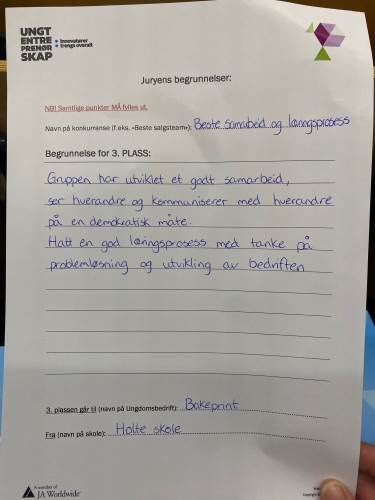 UNGT
ENTRE
PRENØR
SKAP
Innovatører
trengs overalt
Juryens begrunnelser:
NB! Samtlige punkter MÅ fylles ut.
Navn på konkurranse (f.eks. «Beste salgsteam»): Beste samarbeid og læringsprosess
Begrunnelse for 3. PLASS:
Gruppen har utviklet et godt samarbeid,
ser hverandre og kommuniserer med hverandre
på en demokratisk måte.
Hatt en god læringsprosess med tanke på
problemløsning og utvikling av bedriften
3. plassen går til (navn på Ungdomsbedrift): Bakeprint
Fra (navn på skole): Holte skole
A member of
JA Worldwide